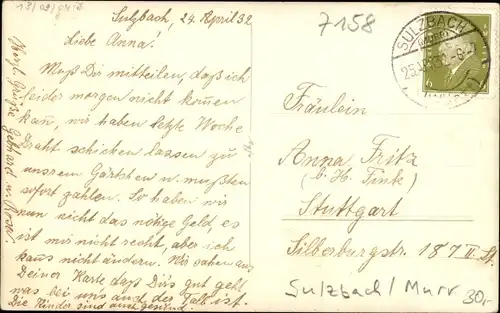 Sulzbach, 24. April 32
Liebe Anna!
Muß Dir mitteilen, daß ich
leider morgen nicht kommen
kann, wir haben letzte Woche
Draht schicken lassen zu
unsrem Gärtchen u. mußten
sofort zahlen. So haben wir
nun nicht das nötige Geld, es
ist mir nicht recht, aber ich
kanns nicht ändern. Wir sahen aus
Deiner Karte daß Dirs gut geht
was bei uns auch der Fall ist.
Die Kinder sind auch gesund.
Herzl. Grüße Gebhard u. Rosa
7158
SULZBACH
(MURR)
6
6
Fräulein
Anna Fritz
(b. H. Fink)
Stuttgart
Silberburgstr. 187 II. St.
Sulzbach / Murr
30,-